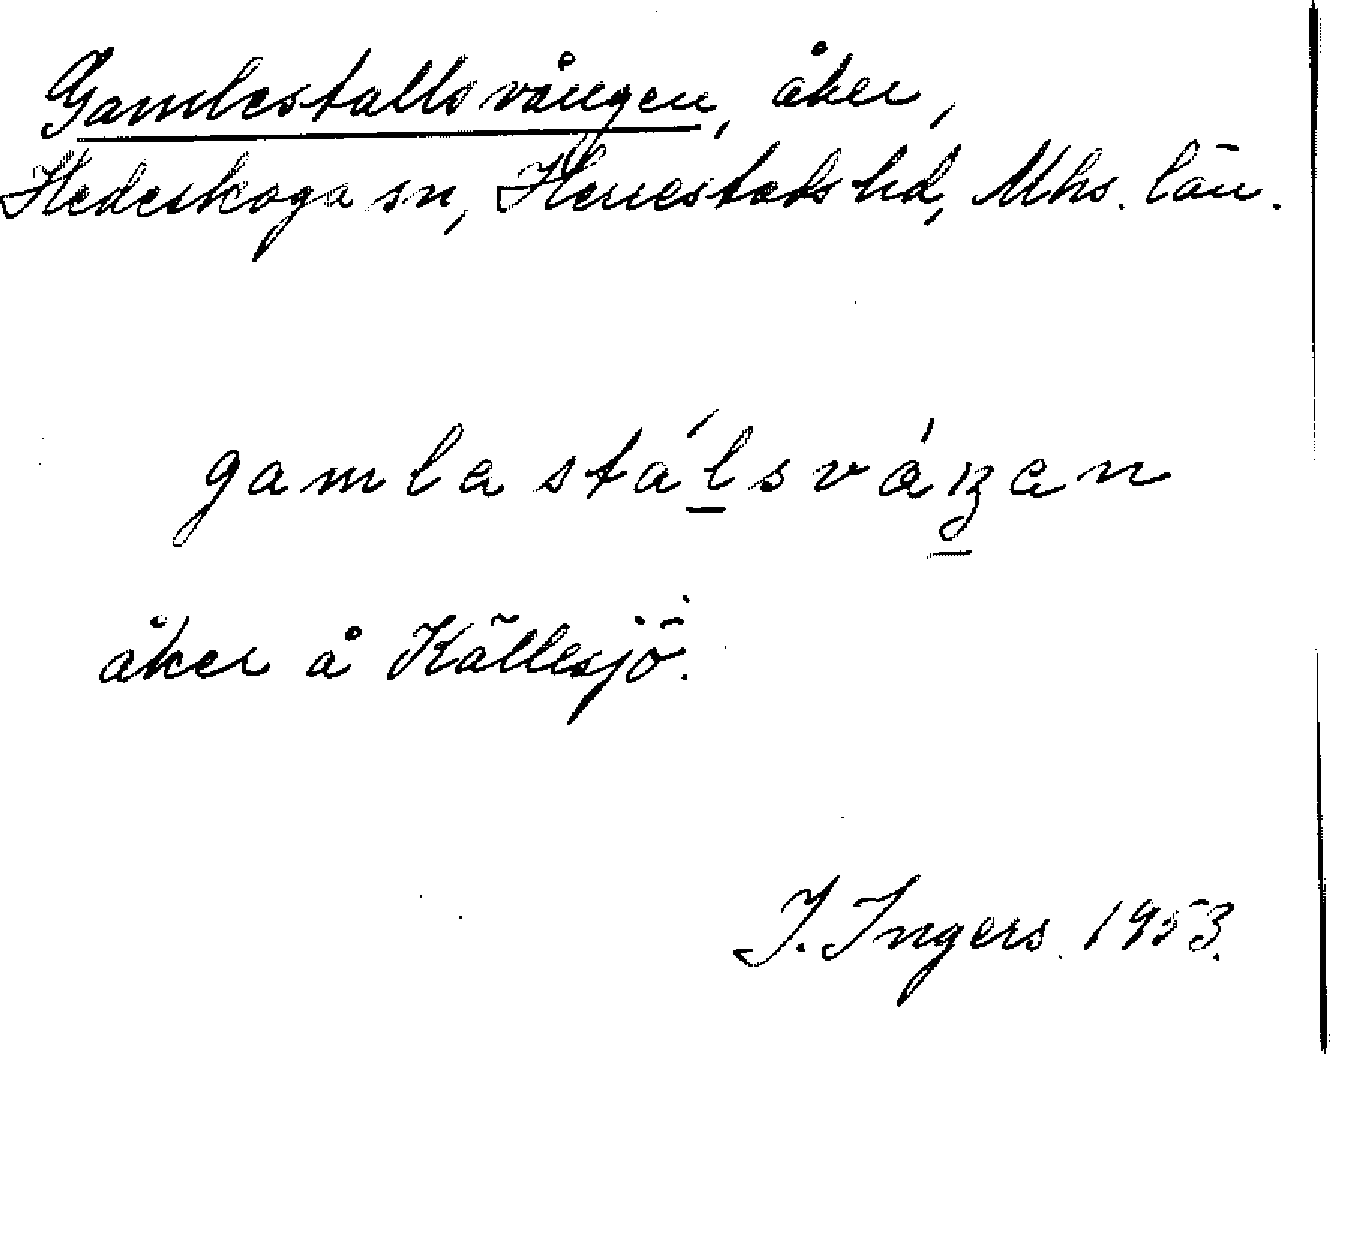 Gamlestallsvången, åker,
Hedeskoga sn, Herrestads hd, Mhs. län.
gamlastál̲sváŋ̲an
åker å Källesjö.
I. Ingers. 1953.